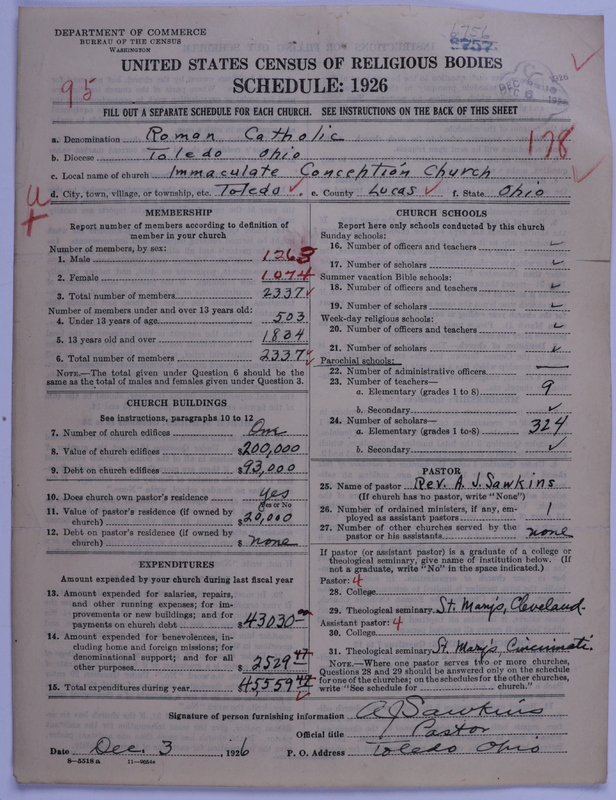 DEPARTMENT OF COMMERCE
BUREAU OF THE CENSUS
WASHINGTON
6756
8757
UNITED STATES CENSUS OF RELIGIOUS BODIES
SCHEDULE: 1926
95
FILL OUT A SEPARATE SCHEDULE FOR EACH CHURCH. SEE INSTRUCTIONS ON THE BACK OF THIS SHEET
178
a. Denomination Roman Catholic
b. Diocese Toledo Ohio
c. Local name of church Immaculate Conception Church
d. City, town, village, or township, etc. Toledo e. County Lucas f. State Ohio
MEMBERSHIP
Report number of members according to definition of
member in your church
Number of members, by sex:
1. Male 1263
2. Female 1074
3. Total number of members 2337
Number of members under and over 13 years old:
4. Under 13 years of age 503
5. 13 years old and over 1834
6. Total number of members 2337
NOTE.—The total given under Question 6 should be the
same as the total of males and females given under Question 3.
CHURCH BUILDINGS
See instructions, paragraphs 10 to 12
7. Number of church edifices One
8. Value of church edifices $200,000
9. Debt on church edifices $93,000
10. Does church own pastor's residence yes
Yes or No
11. Value of pastor's residence (if owned by
church) $20,000
12. Debt on pastor's residence (if owned by
church) $ none
EXPENDITURES
Amount expended by your church during last fiscal year
13. Amount expended for salaries, repairs,
and other running expenses; for im-
provements or new buildings; and for
payments on church debt $43030
14. Amount expended for benevolences, in-
cluding home and foreign missions; for
denominational support; and for all
other purposes $ 2529 47
15. Total expenditures during year $45,559 47
CHURCH SCHOOLS
Report here only schools conducted by this church
Sunday schools:
16. Number of officers and teachers
17. Number of scholars
Summer vacation Bible schools:
18. Number of officers and teachers
19. Number of scholars
Week-day religious schools:
20. Number of officers and teachers
21. Number of scholars
Parochial schools:
22. Number of administrative officers
23. Number of teachers—
a. Elementary (grades 1 to 8) 9
b. Secondary
24. Number of scholars—
a. Elementary (grades 1 to 8) 324
b. Secondary
PASTOR
25. Name of pastor Rev. A. J. Sawkins
(If church has no pastor, write "None")
26. Number of ordained ministers, if any, em-
ployed as assistant pastors 1
27. Number of other churches served by the
pastor or his assistants none
If pastor (or assistant pastor) is a graduate of a college or
theological seminary, give name of institution below. (If
not a graduate, write "No" in the space indicated.)
Pastor: 4
28. College
29. Theological seminary St. Mary's, Cleveland.
Assistant pastor: 4
30. College
31. Theological seminary St. Mary's, Cincinnati.
NOTE.—Where one pastor serves two or more churches,
Questions 28 and 29 should be answered only on the schedule
for one of the churches; on the schedules for the other churches,
write "See schedule for church."
Signature of person furnishing information A J Sawkins
Official title Pastor
Date Dec. 3, 1926 P. O. Address Toledo Ohio
8—5518 a